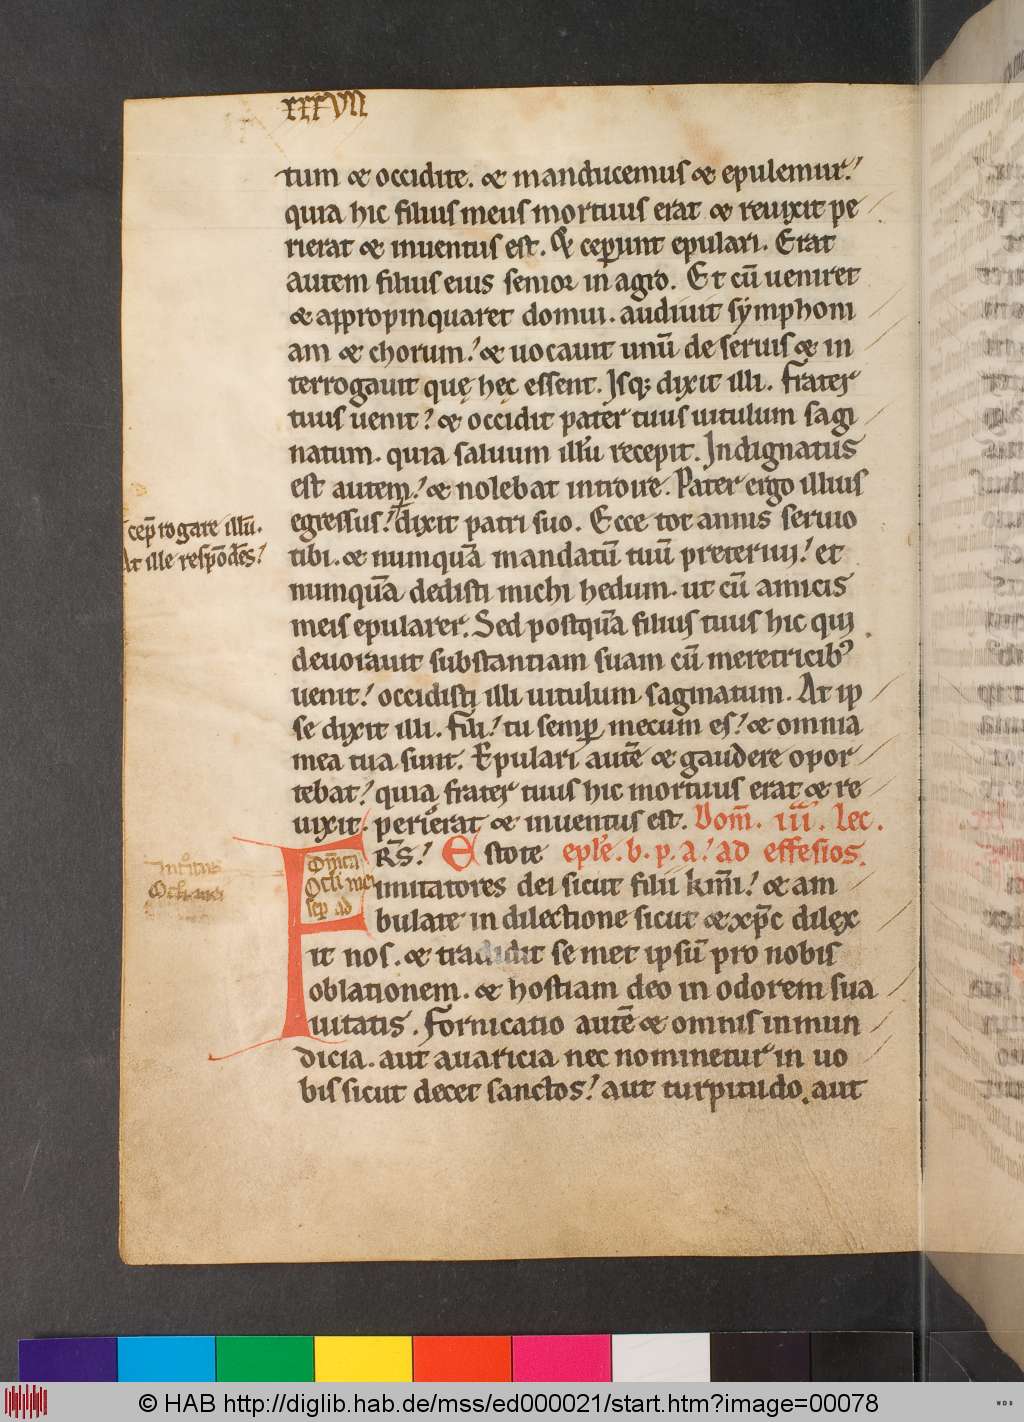 xxxvii
tum & occidite. & manducemus & epulemur.
quia hic filius meus mortuus erat & reuixit pe
rierat & inuentus est. & ceperunt epulari. Erat
autem filius eius senior in agro. Et cū ueniret
& appropinquaret domui. audiuit symphoni
am & chorum. & uocauit unū de seruis & in
terrogauit quę hęc essent. Isq; dixit illi. Frater
tuus uenit. & occidit pater tuus uitulum sagi
natum. quia saluum illū recepit. Indignatus
est autem. & nolebat introire. Pater ergo illius
cep̄ rogare illū.
egressus. dixit patri suo. Ecce tot annis seruio
At ille respōdēs.
tibi. & numquā mandatū tuū preteriui. et
numquā dedisti michi hedum. ut cū amicis
meis epularer. Sed postquā filius tuus hic qui
deuorauit substantiam suam cū meretricib᾽
uenit. occidisti illi uitulum saginatum. At ip
se dixit illi. fili. tu semp mecum es. & omnia
mea tua sunt. Epulari autē & gaudere opor
tebat. quia frater tuus hic mortuus erat & re
uixit. perierat & inuentus est. Dom̄. iii. lec.
FRS. Estote epłe. b. p. a. ad effesios.
Dn̄ica
Oculi mei
sep ad
Oculi mei
imitatores dei sicut filii kmi. & am
bulate in dilectione sicut & xp̄c dilex
it nos. & tradidit semet ipsū pro nobis
oblationem. & hostiam deo in odorem sua
uitatis. Fornicatio autē & omnis inmun
dicia. aut auaricia nec nominetur in uo
bis sicut decet sanctos. aut turpitudo. aut
© HAB http://diglib.hab.de/mss/ed000021/start.htm?image=00078